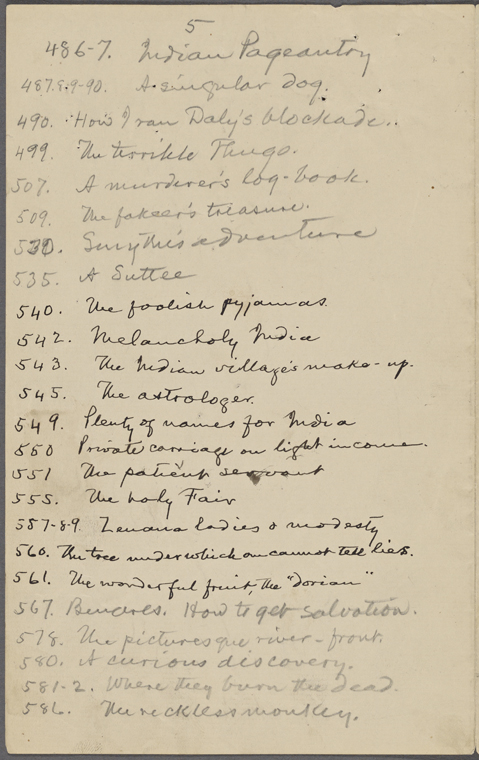 5
486-7. Indian Pageantry
487.8.9-90. A singular dog.
490. How I ran Daly's blockade..
499. The terrible Thugs.
507. A murderer's log-book.
509. The fakeer's treasure.
530. Smythe's adventure
535. A Suttee
540. The foolish pyjamas.
542. Melancholy India
543. The Indian village's make-up.
545. The astrologer.
549. Plenty of names for India
550 Private carriage on light income.
551 The patient servant
555. The holy Fair
557-8-9. Zenana ladies & modesty
560. The tree under which one cannot tell lies.
561. The wonderful fruit, the "dorian"
567. Benares. How to get salvation.
578. The picturesque river-front.
580. A curious discovery.
581-2. Where they burn the dead.
586. The reckless monkey.